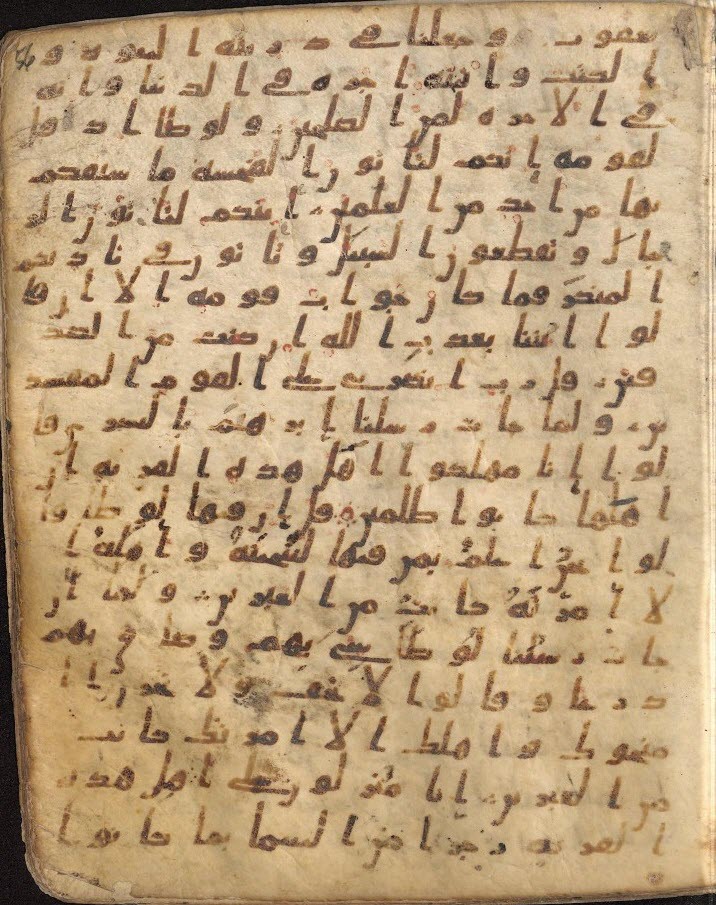 يعقوب وجعلنا في ذريته النبوه و
الكتب واتينه اجره في الدنيا وانه
في الاخره لمن الصلحين ولوطا اذ قا
لقومه انكم لتاتون الفحشه ما سبقكم
بها من احد من العلمين اينكم لتاتون الر
جال وتقطعون السبيل وتاتون في ناديكم
المنكر فما كان جواب قومه الا ان قا
لوا ائتنا بعذاب الله ان كنت من الصد
قين قال رب انصرني على القوم المفسد
ين ولما جات رسلنا ابرهيم بالبشرى قا
لوا انا مهلكوا اهل هذه القريه ان
اهلها كانوا ظلمين قال ان فيها لوطا قا
لوا نحن اعلم بمن فيها لننجينه واهله ا
لا امرته كانت من الغبرين ولما ان
جات رسلنا لوطا سي بهم وضاق بهم
ذرعا وقالوا لا تخف ولا تحزن انا
منجوك واهلك الا امرتك كانت
من الغبرين انا منزلون على اهل هذه
القريه رجزا من السما بما كانوا